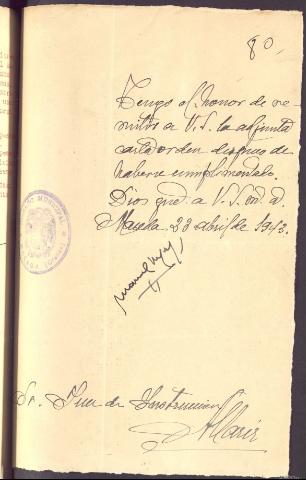 80
Tengo el honor de re-
mitir a V.S. la adjunta
carta orden despues de
haberse cumplimentado.
Dios gue. a V.S. m. a.
Maceda 23 abril de 1943.
Manuel
Sr. Juez de Instruccion
Allariz